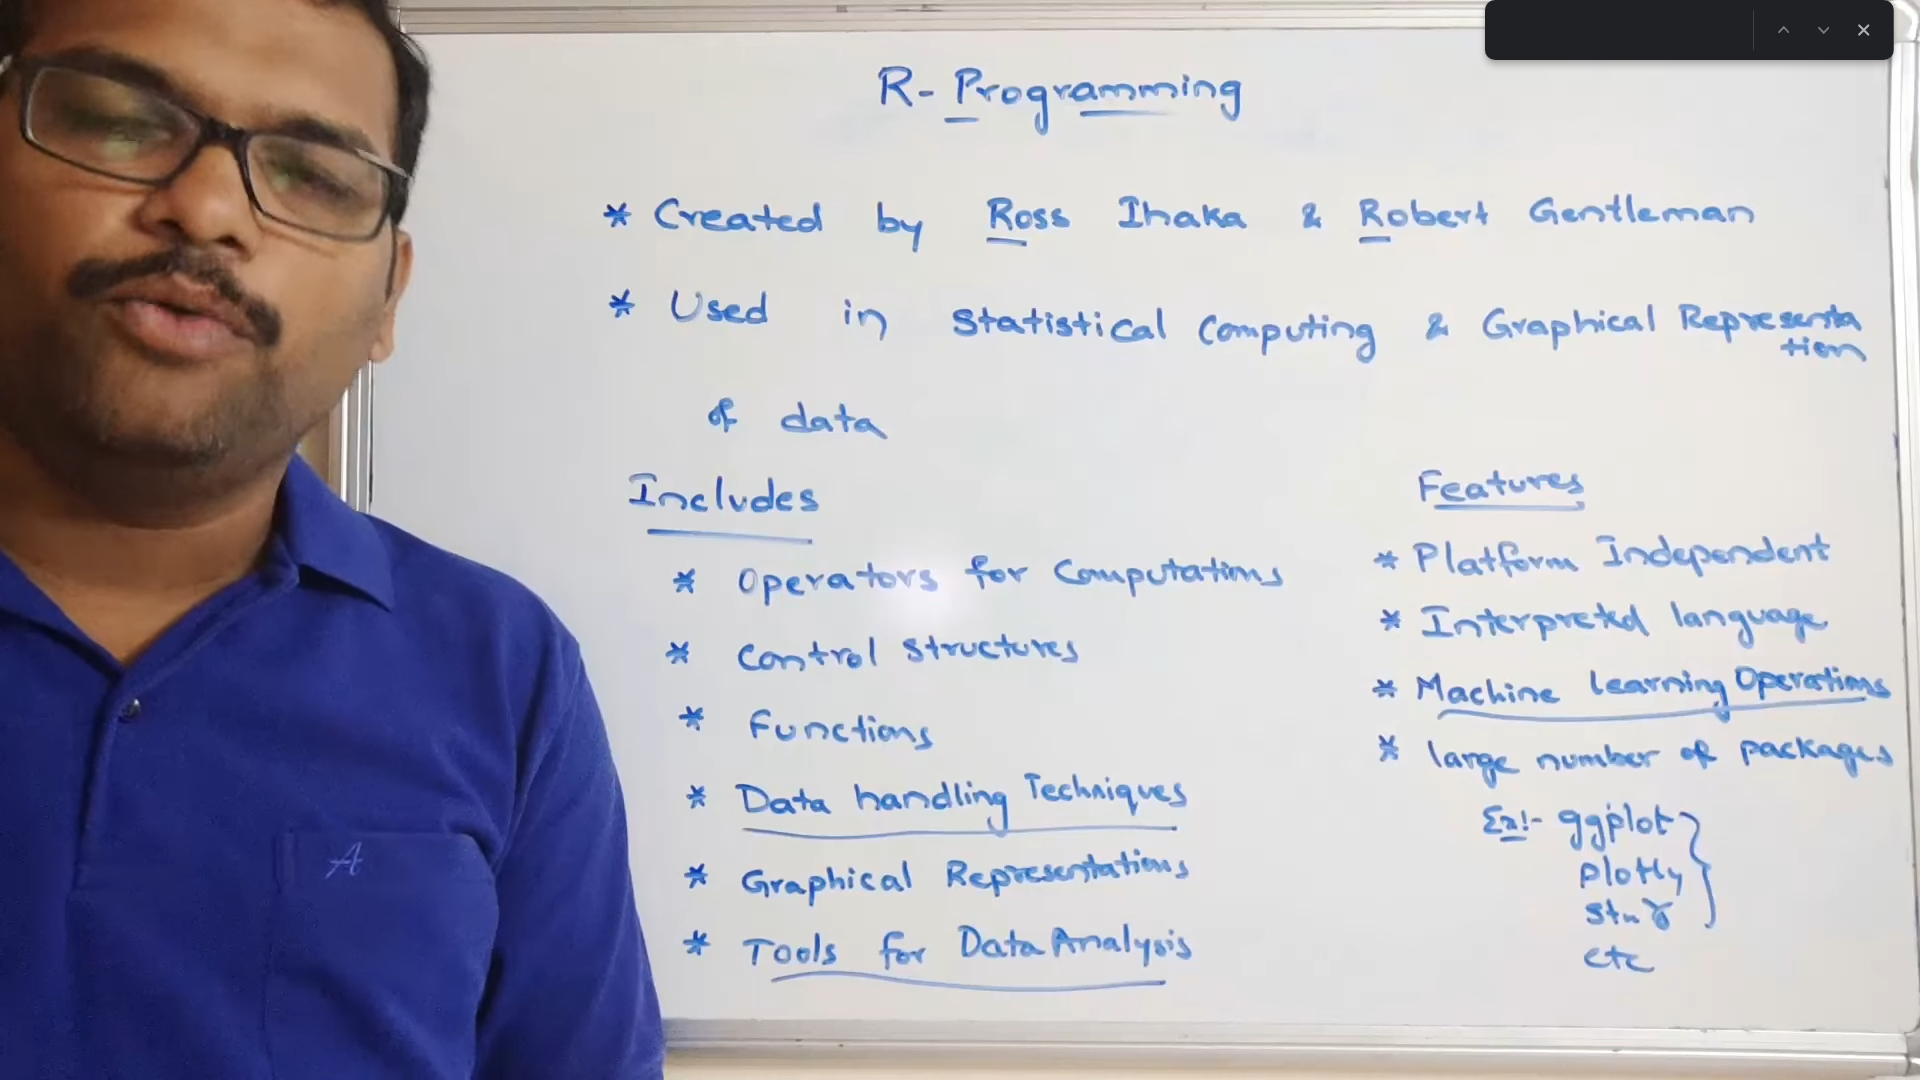 R- Programming
* Created by Ross Ihaka & Robert Gentleman
* Used in Statistical Computing & Graphical Representa
tion
of data
Includes
* Operators for Computations
* Control Structures
* Functions
* Data handling Techniques
* Graphical Representations
* Tools for Data Analysis
Features
* Platform Independent
* Interpreted language
* Machine Learning Operations
* large number of packages
Ex:- ggplot
Plotly
etc
A